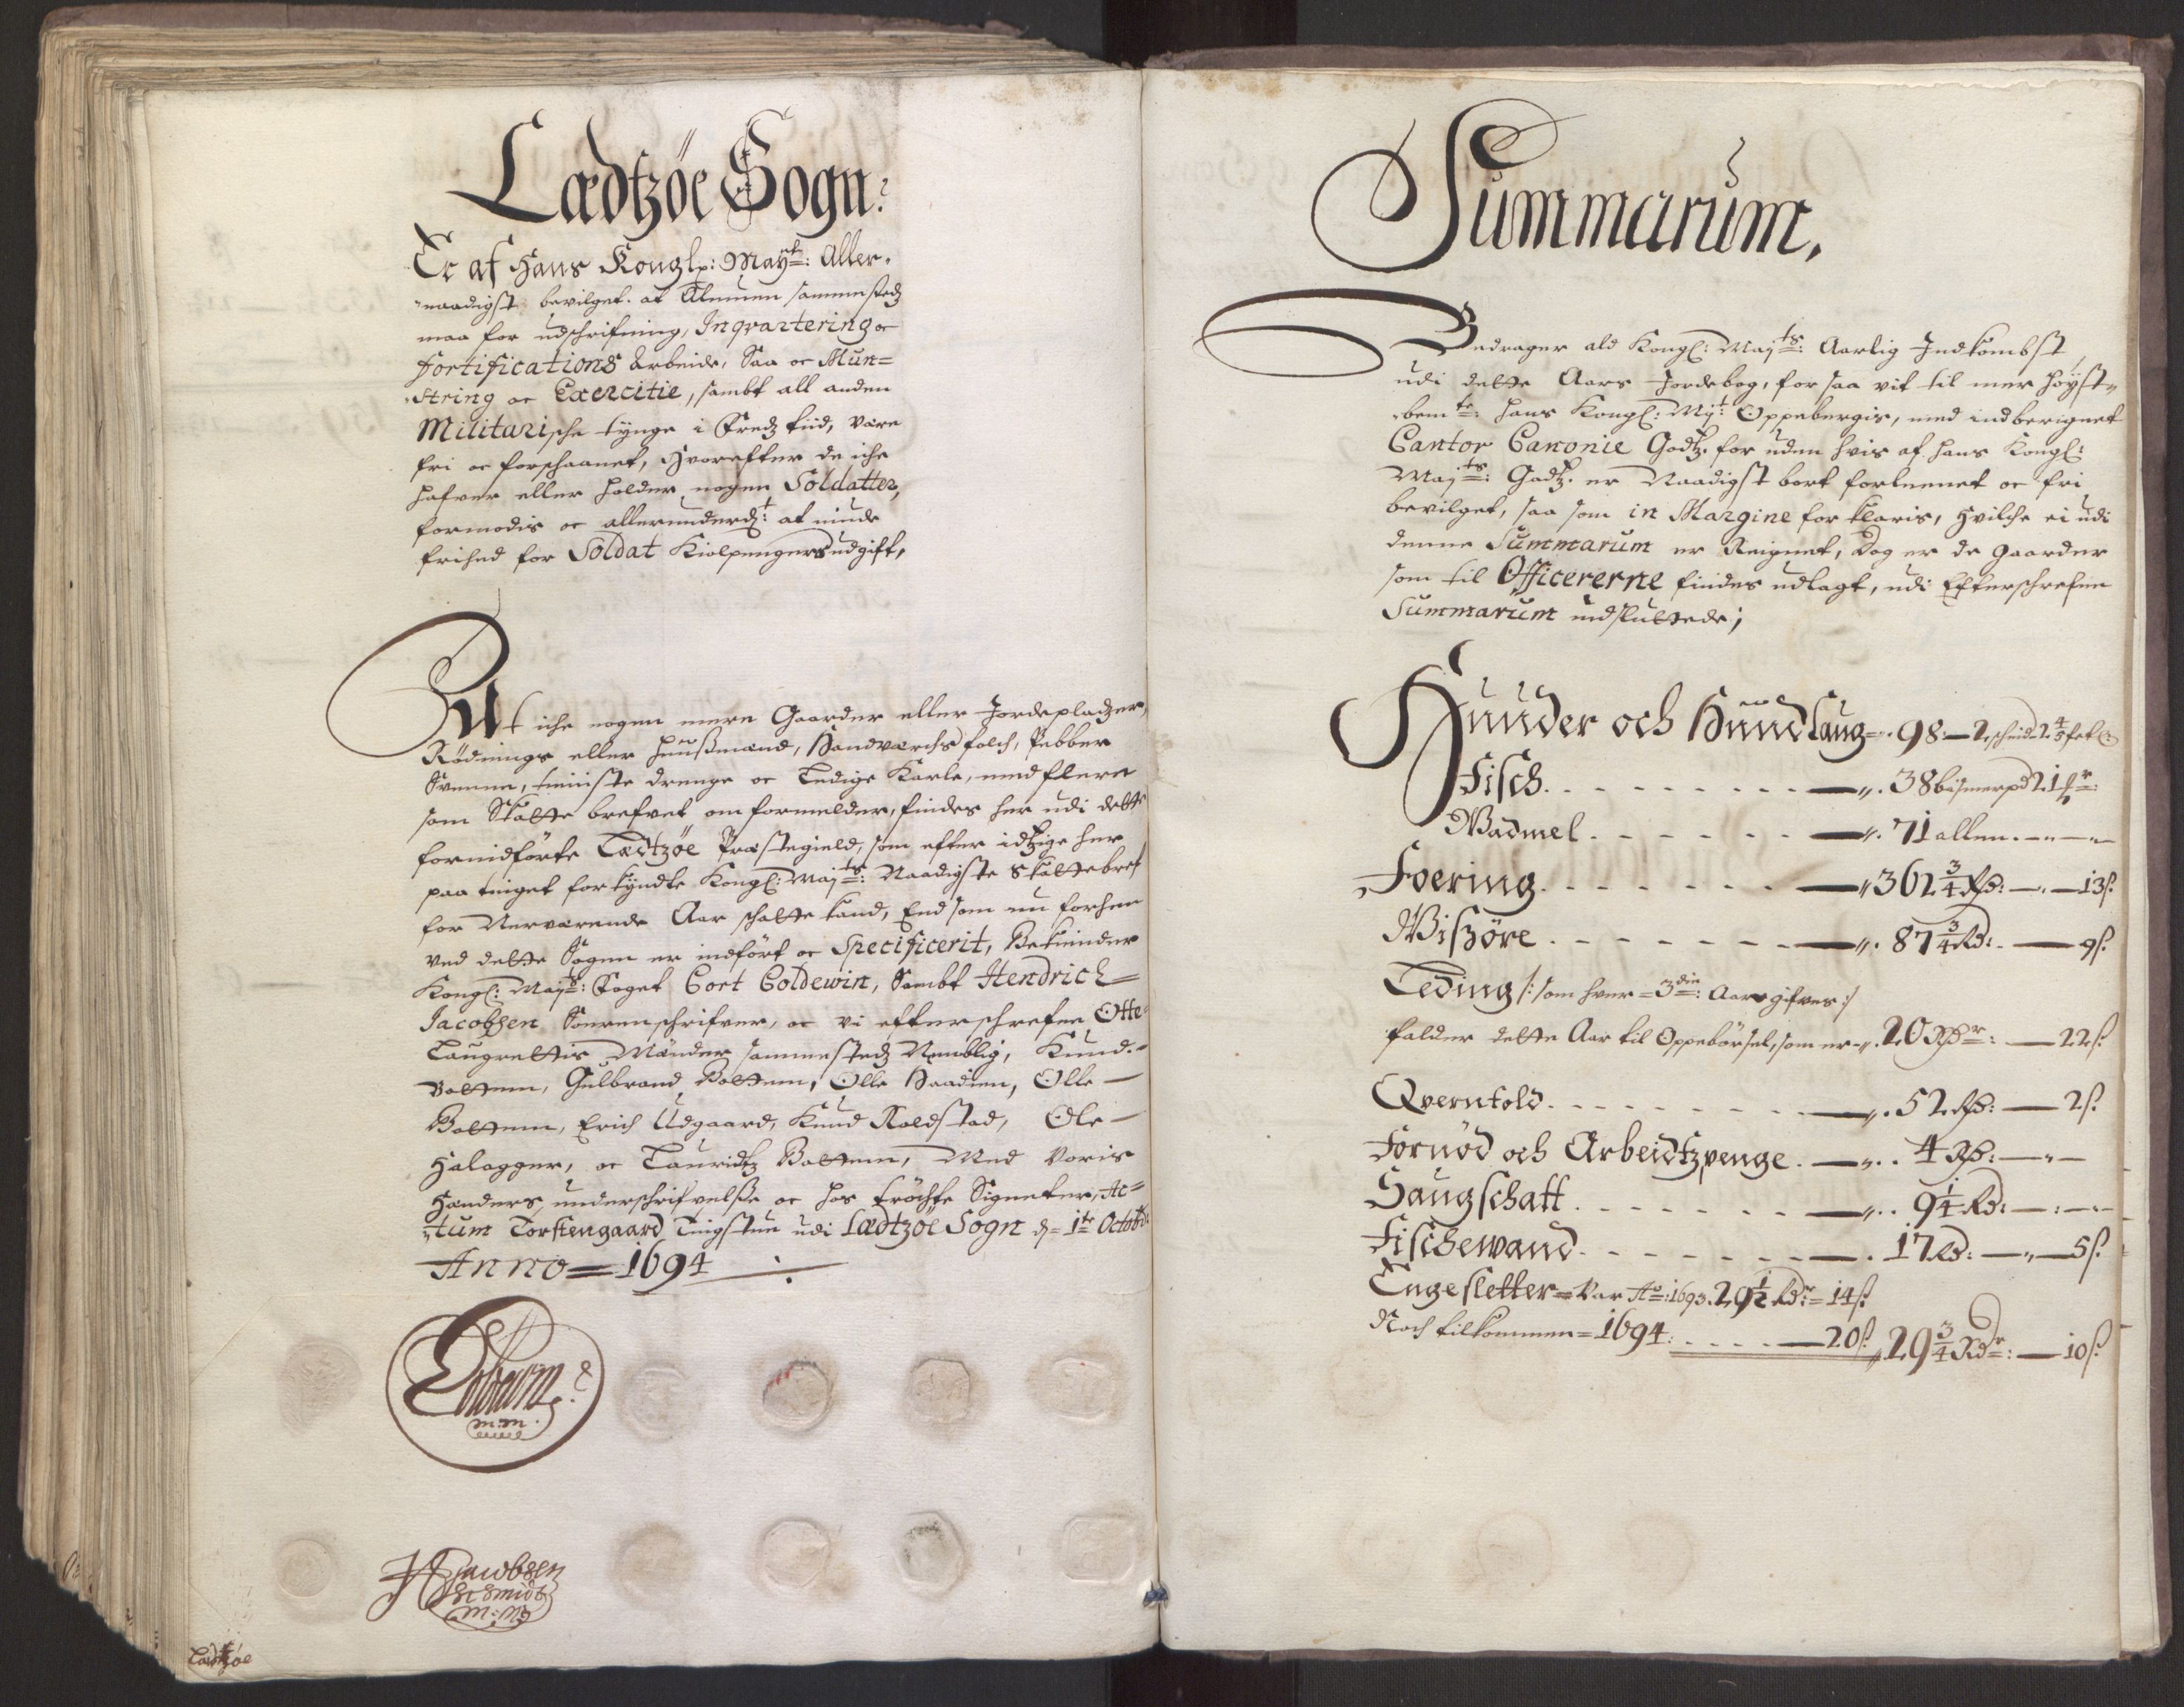 Lædtzöe Sogn:
Er af Hans Konglx: Maytt: Aller-
naadigst bevilget. at Almuen sammestedz
maa for udschrifning, Inqvartering oc
Fortifications Arbeide, Saa oc Mün=
string oc Exercitie, sambt all anden
Militarische tynge i Fredz tiid, være
fri oc forschaanet, Hvorefter de iche
hafver eller holder nogen Soldatter,
formodis oc allerunderdt: at niude
frihed for Soldat Kiolpengers udgift,
At iche nogen mere Gaarder eller Jordepladzer,
Rödnings eller Huußmænd, Handværchs folch, Pebber
Svenne, tieniste drenge oc Ledige Karle, med flere
som Skatte brefvet om formelder, findes her udi dette
fornidförte Lædtzöe Præstegield, som efter idtzige her
paa tinget forkyndte Kongl: Majts: Naadigste Skattebref
for Nerværende Aar schatte kand, End som nu forhen
ved dette Sogn er indfört oc Specificerit, Bekiender
Kongl: Majts: Foget Cort Coldewin, Sambt Hendrich
Jacobsen Sorenschrifver, oc vi efterschrefne Otte
Laugrettis Mænder sammestedz Nemblig, Knud
Bottem, Gulbrand Bottem, Olle Haadien, Olle
Bottem, Erich Udgaard, Knud Roldstad, Ole
Holagger, oc Lauridtz Bottem, Med Voris
Hænders underschrifvelsse oc hos tröchte Signeter, Ac=
tum Torstengaard Tingstue udi Lædtzöe Sogn d= 1te Octob:
Anno = 1694
Coldewin
m:m.
HJacobsen
Schmidt
m:m
Lædtzöe
Summarum,
Bedrager ald Kongl: Majts: Aarlig Indkombst
udi dette Aars Jordebog, for saa vit til mer höyst-
bemte: Hans Kongl: Mjt: Oppebergis, med indberignet
Cantor Canonie Godtz. for uden hvis af Hans Kongl:
Majts: Godtz. er Naadigst bort forlenet oc fri
bevilget, saa som in Margine for klaris, Hvilche ei udi
denne Summarum er Reignet, Dog er de Gaarder
som til Officererne findes udlagt, udi Efterschrefne
Summarum indsluttede;
Huuder och Hundlaug - 98 - 2 scheid 2 4/5 fet
Fisch. - 38 bismerpd 21
Wadmel. - 71 allen.
Foering. - 362 3/4 Rd: - 13 ß.
Wisöre. - 87 3/4 Rd: - 9 ß.
Leding /: som hver = 3die: Aar gifves :/
falder dette Aar til Oppebörsel, som er 20 Rdr: - 22 ß.
Qverntold. - 52 Rd: - 2 ß.
Fornöd och Arbeidtzpenge. - 4 Rd:
Haugschatt. - 9 1/4 Rd:
Fischewand. - 17 Rd: - 5 ß.
Engesletter = Var Ao: 1693. 29 1/2 Rdr = 14 ß.
Noch tilkommen = 1694: - 20 ß. 29 3/4 Rdr: - 10 ß.